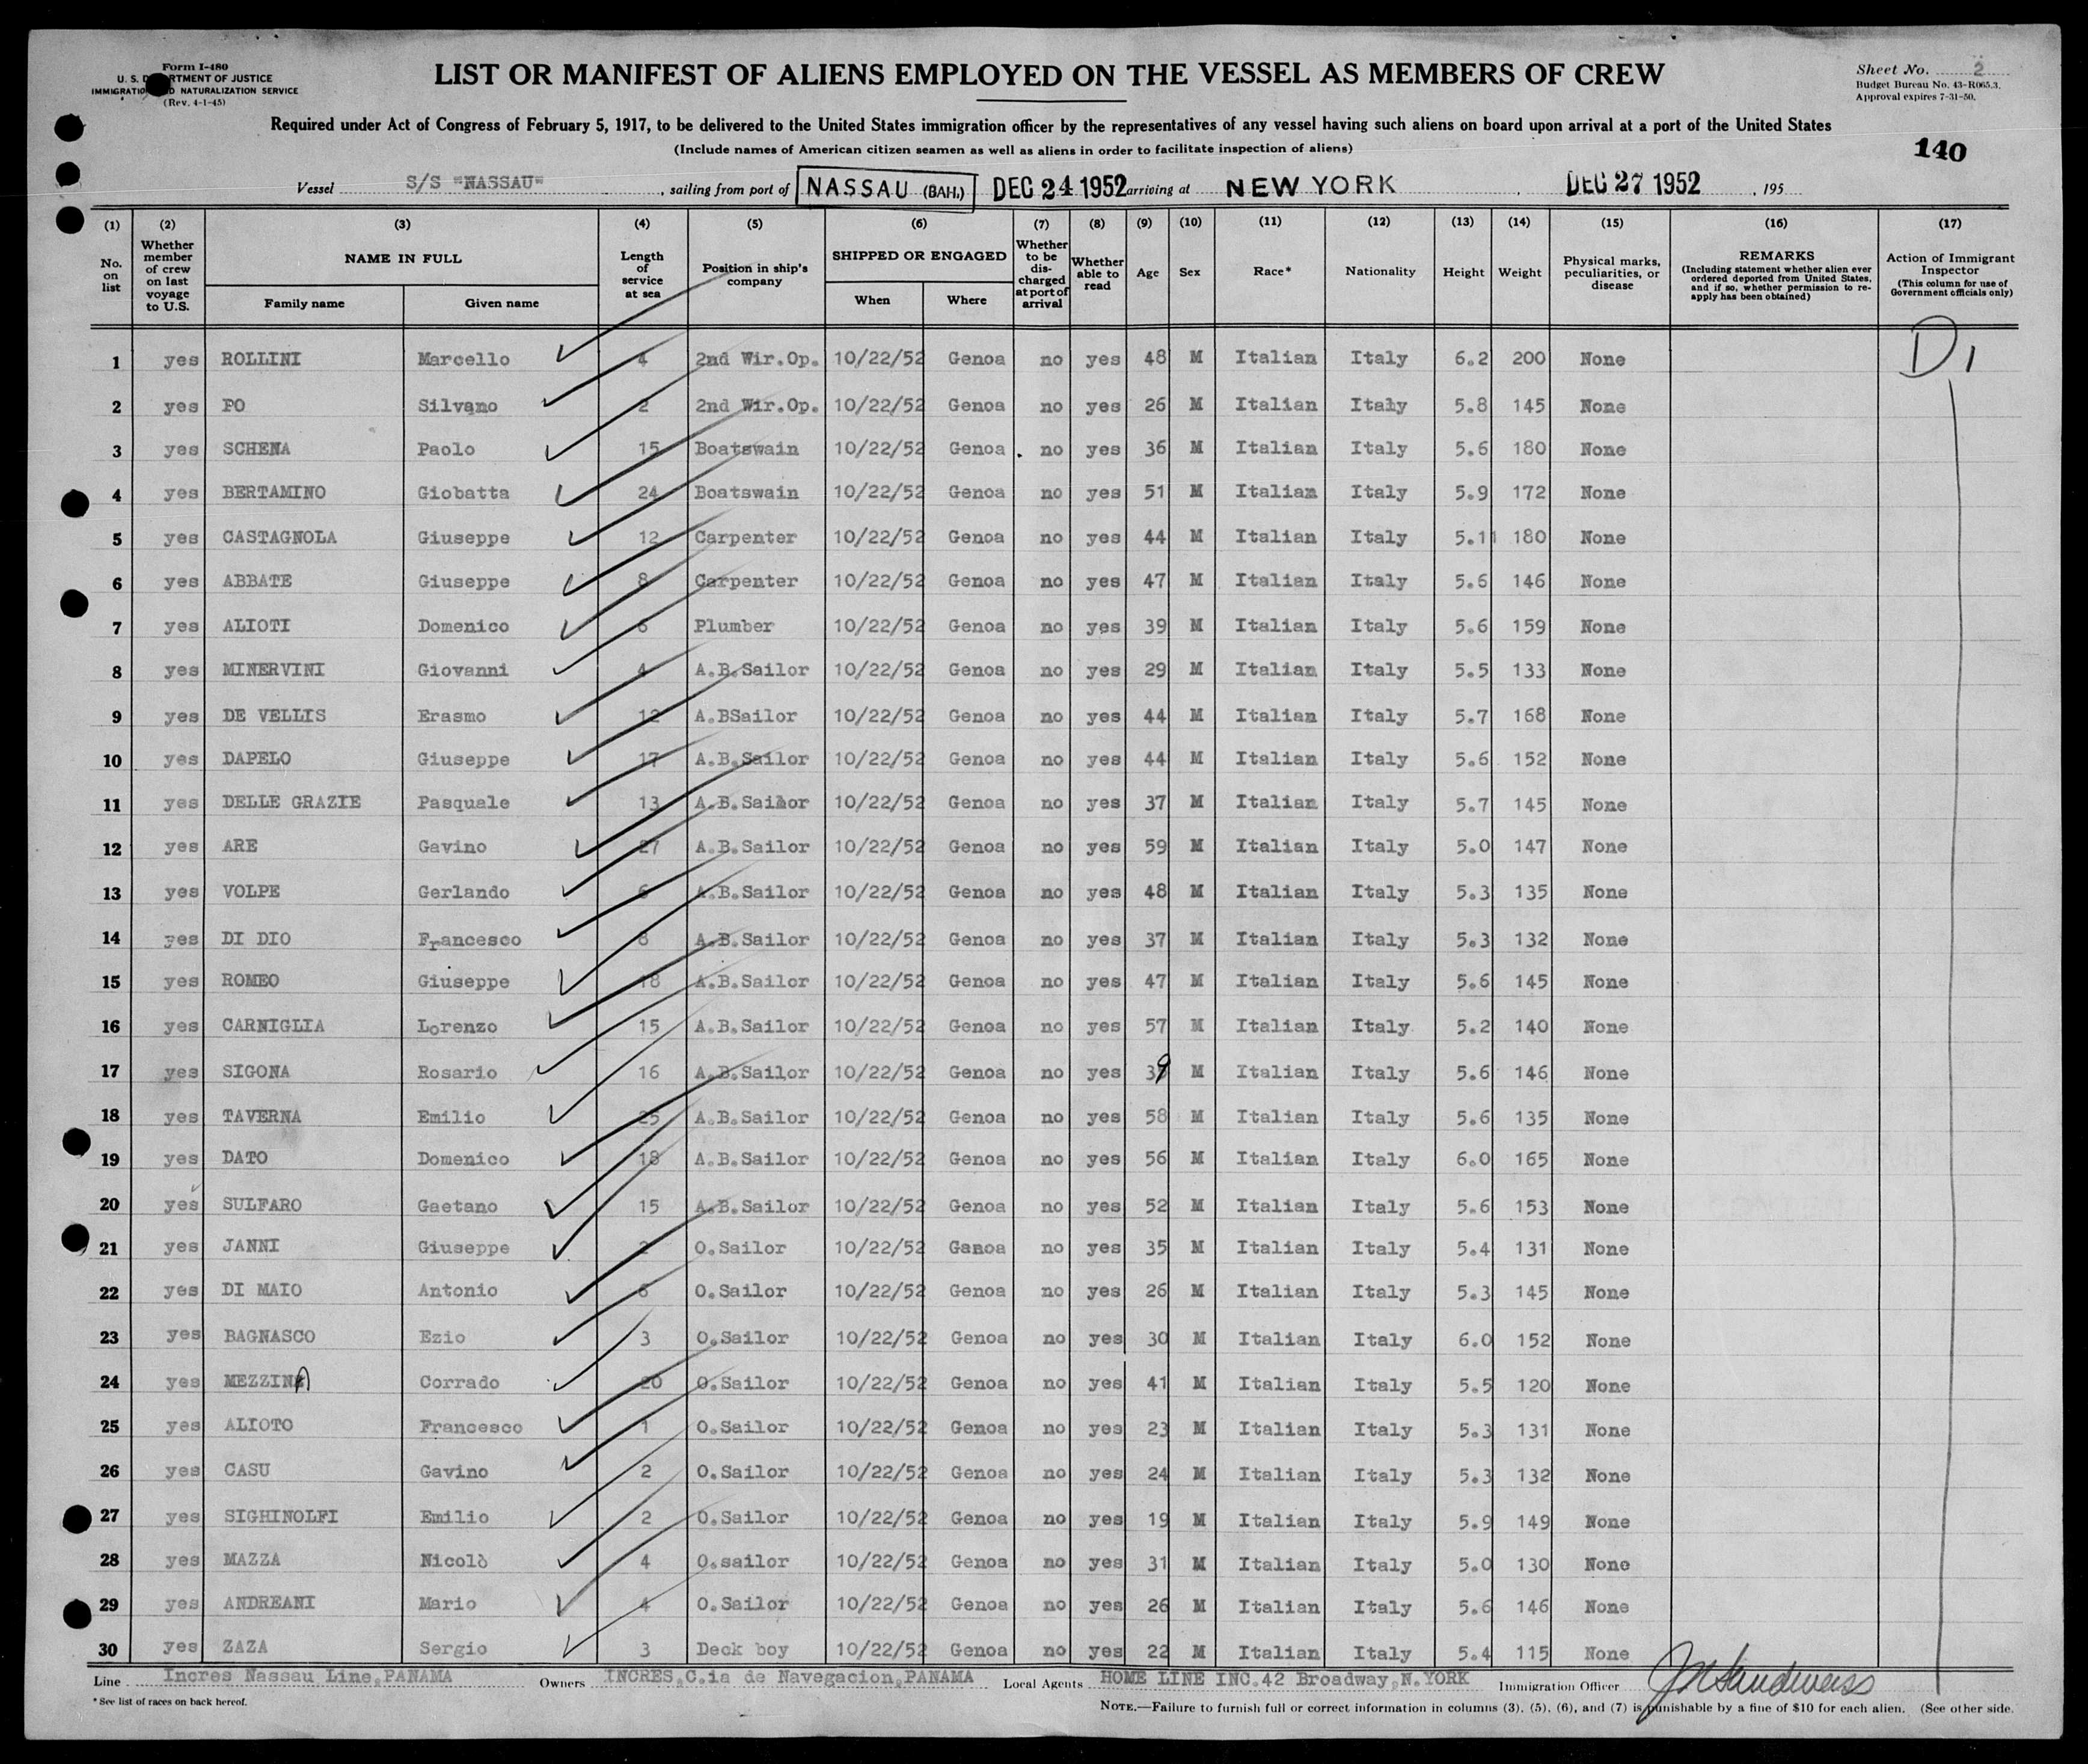 Form I-480
U. S. DEPARTMENT OF JUSTICE
IMMIGRATION AND NATURALIZATION SERVICE
(Rev. 4-1-45)
LIST OR MANIFEST OF ALIENS EMPLOYED ON THE VESSEL AS MEMBERS OF CREW
Sheet No. 2
Budget Bureau No. 43-R065.3.
Approval expires 7-31-50.
Required under Act of Congress of February 5, 1917, to be delivered to the United States immigration officer by the representatives of any vessel having such aliens on board upon arrival at a port of the United States
(Include names of American citizen seamen as well as aliens in order to facilitate inspection of aliens)
140
Vessel S/S "NASSAU", sailing from port of NASSAU (BAH.) DEC 24 1952 arriving at NEW YORK, DEC 27 1952, 195
(1) No. on list
(2) Whether member of crew on last voyage to U.S.
(3) NAME IN FULL
Family name Given name
(4) Length of service at sea
(5) Position in ship's company
(6) SHIPPED OR ENGAGED
When Where
(7) Whether to be discharged at port of arrival
(8) Whether able to read
(9) Age
(10) Sex
(11) Race*
(12) Nationality
(13) Height
(14) Weight
(15) Physical marks, peculiarities, or disease
(16) REMARKS (Including statement whether alien ever ordered deported from United States, and if so, whether permission to re-apply has been obtained)
(17) Action of Immigrant Inspector (This column for use of Government officials only)
1 yes ROLLINI Marcello 4 2nd Wir.Op. 10/22/52 Genoa no yes 48 M Italian Italy 6.2 200 None D1
2 yes PO Silvano 2 2nd Wir.Op. 10/22/52 Genoa no yes 26 M Italian Italy 5.8 145 None
3 yes SCHENA Paolo 15 Boatswain 10/22/52 Genoa . no yes 36 M Italian Italy 5.6 180 None
4 yes BERTAMINO Giobatta 24 Boatswain 10/22/52 Genoa no yes 51 M Italian Italy 5.9 172 None
5 yes CASTAGNOLA Giuseppe 12 Carpenter 10/22/52 Genoa no yes 44 M Italian Italy 5.11 180 None
6 yes ABBATE Giuseppe 8 Carpenter 10/22/52 Genoa no yes 47 M Italian Italy 5.6 146 None
7 yes ALIOTI Domenico 6 Plumber 10/22/52 Genoa no yes 39 M Italian Italy 5.6 159 None
8 yes MINERVINI Giovanni 4 A.B.Sailor 10/22/52 Genoa no yes 29 M Italian Italy 5.5 133 None
9 yes DE VELLIS Erasmo 12 A.BSailor 10/22/52 Genoa no yes 44 M Italian Italy 5.7 168 None
10 yes DAPELO Giuseppe 17 A.B.Sailor 10/22/52 Genoa no yes 44 M Italian Italy 5.6 152 None
11 yes DELLE GRAZIE Pasquale 13 A.B.Sailor 10/22/52 Genoa no yes 37 M Italian Italy 5.7 145 None
12 yes ARE Gavino 27 A.B.Sailor 10/22/52 Genoa no yes 59 M Italian Italy 5.0 147 None
13 yes VOLPE Gerlando 6 A.B.Sailor 10/22/52 Genoa no yes 48 M Italian Italy 5.3 135 None
14 yes DI DIO Francesco 8 A.B.Sailor 10/22/52 Genoa no yes 37 M Italian Italy 5.3 132 None
15 yes ROMEO Giuseppe 18 A.B.Sailor 10/22/52 Genoa no yes 47 M Italian Italy 5.6 145 None
16 yes CARNIGLIA Lorenzo 15 A.B.Sailor 10/22/52 Genoa no yes 57 M Italian Italy 5.2 140 None
17 yes SIGONA Rosario 16 A.B.Sailor 10/22/52 Genoa no yes 39 M Italian Italy 5.6 146 None
18 yes TAVERNA Emilio 25 A.B.Sailor 10/22/52 Genoa no yes 58 M Italian Italy 5.6 135 None
19 yes DATO Domenico 18 A.B.Sailor 10/22/52 Genoa no yes 56 M Italian Italy 6.0 165 None
20 yes SULFARO Gaetano 15 A.B.Sailor 10/22/52 Genoa no yes 52 M Italian Italy 5.6 153 None
21 yes JANNI Giuseppe 2 O.Sailor 10/22/52 Ganoa no yes 35 M Italian Italy 5.4 131 None
22 yes DI MAIO Antonio 6 O.Sailor 10/22/52 Genoa no yes 26 M Italian Italy 5.3 145 None
23 yes BAGNASCO Ezio 3 O.Sailor 10/22/52 Genoa no yes 30 M Italian Italy 6.0 152 None
24 yes MEZZINA Corrado 20 O.Sailor 10/22/52 Genoa no yes 41 M Italian Italy 5.5 120 None
25 yes ALIOTO Francesco 1 O.Sailor 10/22/52 Genoa no yes 23 M Italian Italy 5.3 131 None
26 yes CASU Gavino 2 O.Sailor 10/22/52 Genoa no yes 24 M Italian Italy 5.3 132 None
27 yes SIGHINOLFI Emilio 2 O.Sailor 10/22/52 Genoa no yes 19 M Italian Italy 5.9 149 None
28 yes MAZZA Nicolò 4 O.sailor 10/22/52 Genoa no yes 31 M Italian Italy 5.0 130 None
29 yes ANDREANI Mario 4 O.Sailor 10/22/52 Genoa no yes 26 M Italian Italy 5.6 146 None
30 yes ZAZA Sergio 3 Deck boy 10/22/52 Genoa no yes 22 M Italian Italy 5.4 115 None
Line Incres Nassau Line,PANAMA Owners INCRES,C.ia de Navegacion,PANAMA Local Agents HOME LINE INC.42 Broadway,N.YORK Immigration Officer
* See list of races on back hereof.
NOTE.—Failure to furnish full or correct information in columns (3), (5), (6), and (7) is punishable by a fine of $10 for each alien. (See other side.